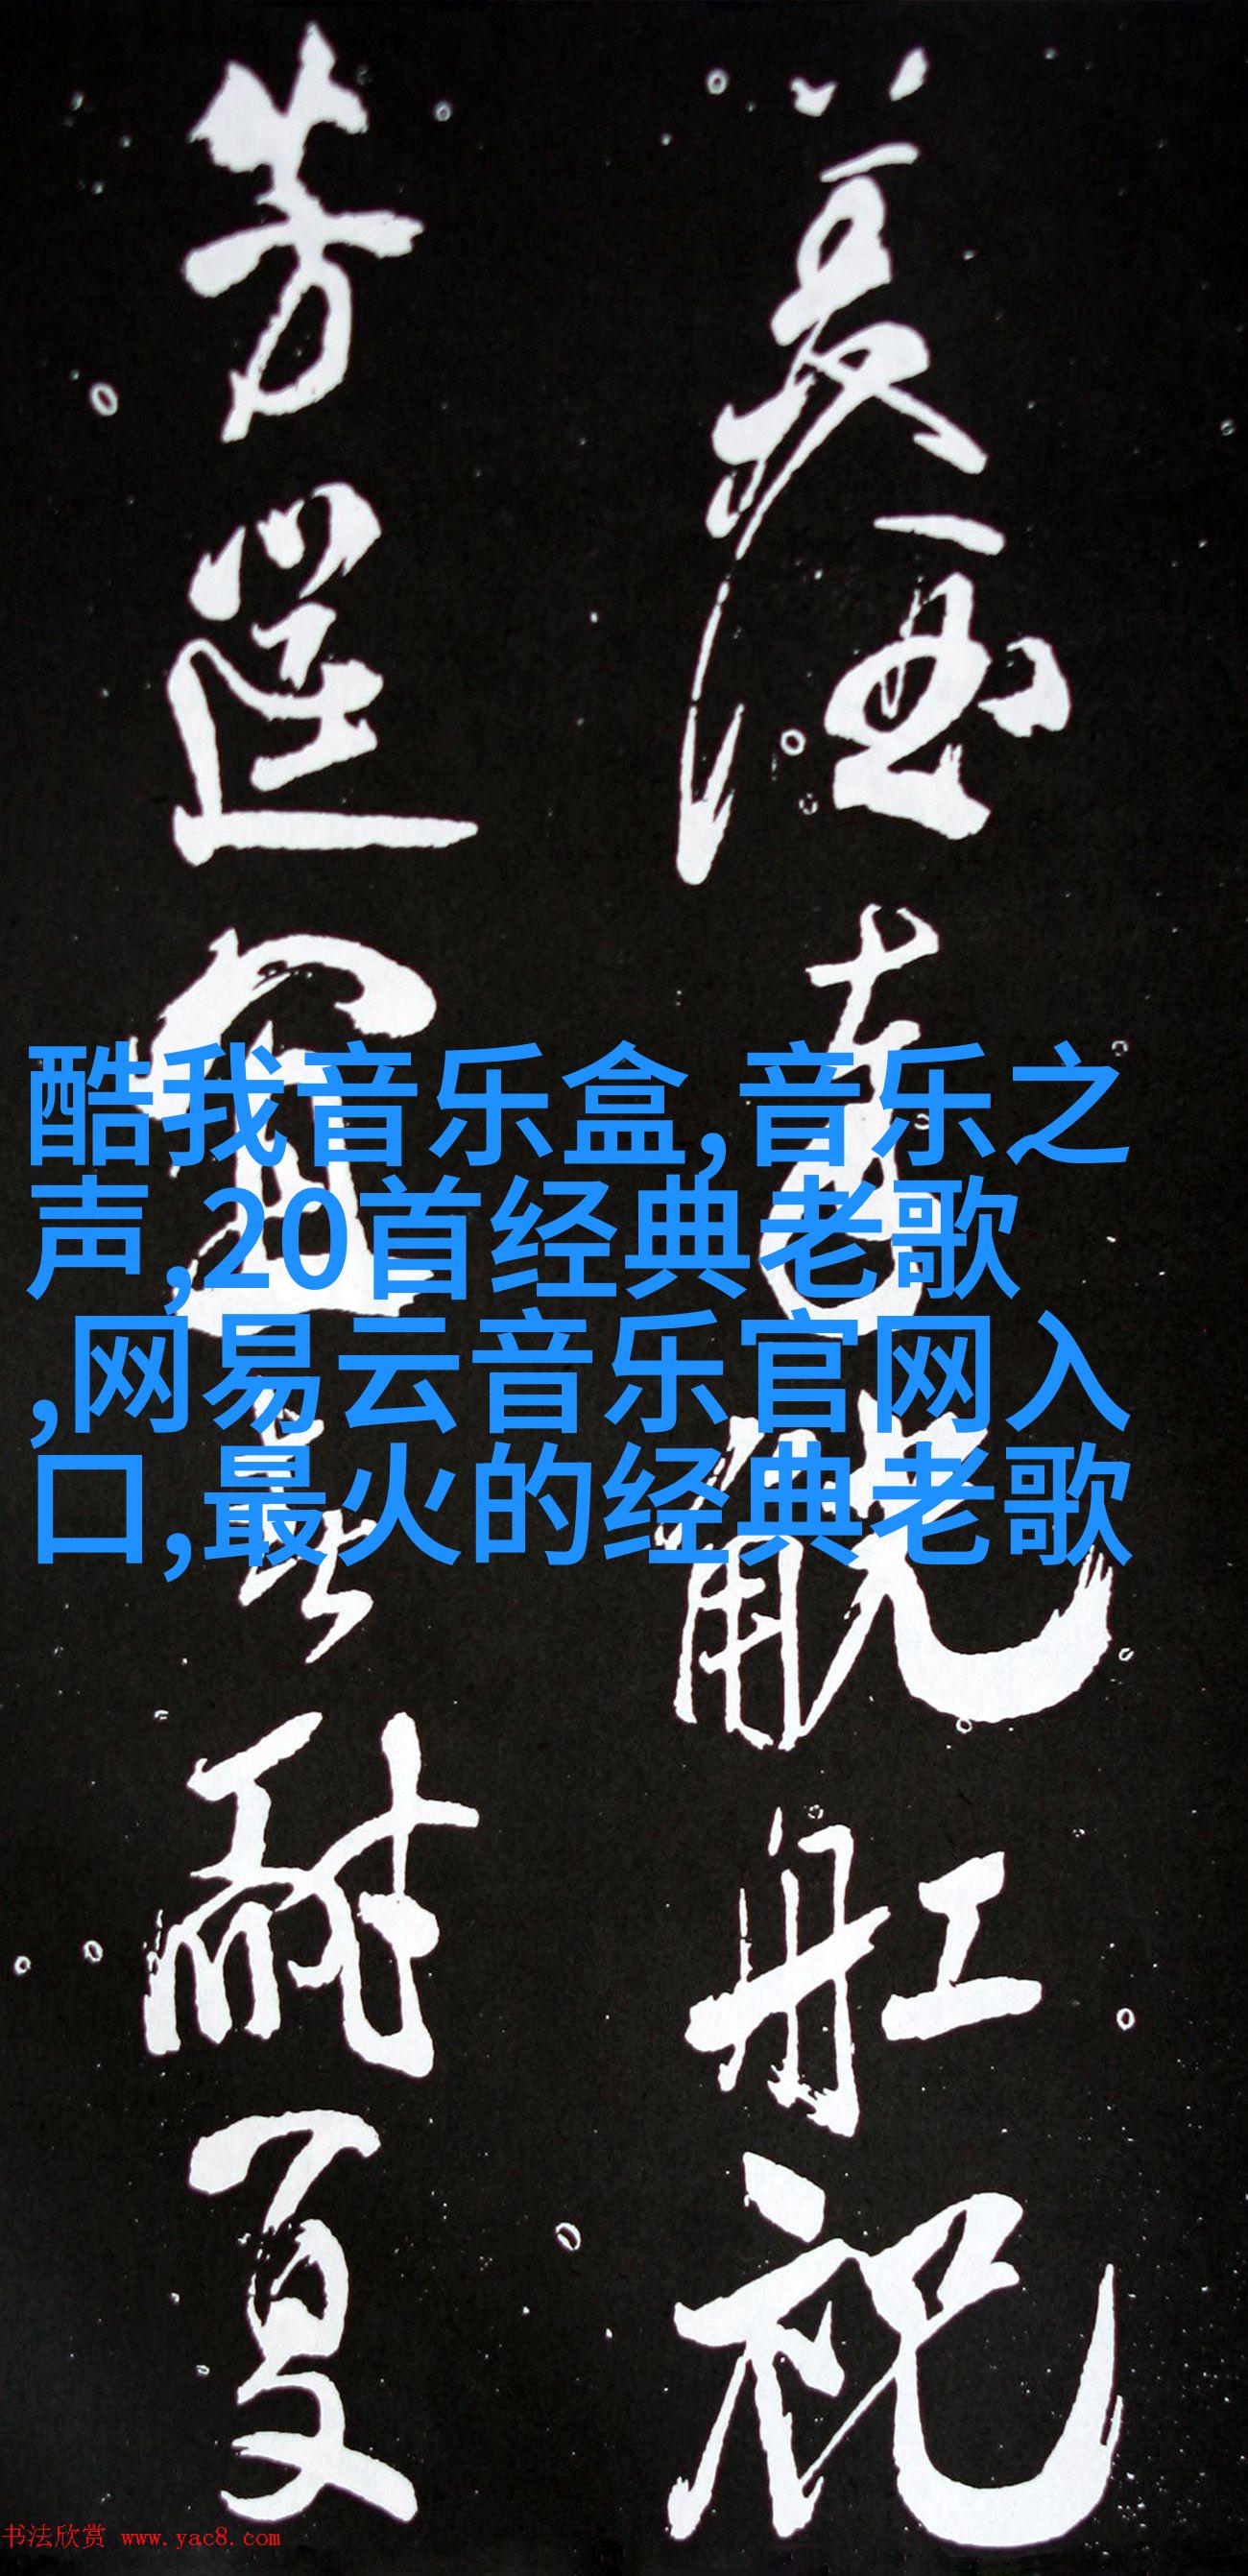 酒 觥舡祝
芳筵宜 耐夏
酷我音乐盒,音乐之
声,20首经典老歌
,网易云音乐官网入
口,最火的经典老歌
书法欣赏 www.yac8.com